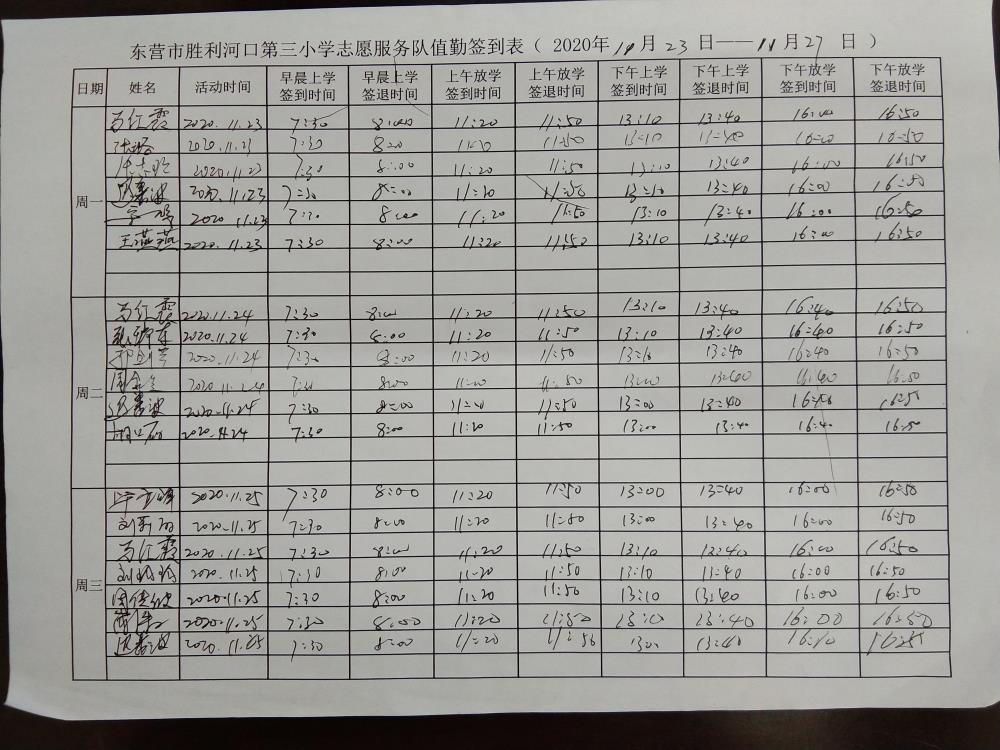 东营市胜利河口第三小学志愿服务队值勤签到表（ 2020年 11月 23 日——11月27 日 ）
日期 姓名 活动时间 早晨上学签到时间 早晨上学签退时间 上午放学签到时间 上午放学签退时间 下午上学签到时间 下午上学签退时间 下午放学签到时间 下午放学签退时间
周一
马红霞 2020.11.23 7:30 8:00 11:20 11:50 13:10 13:40 16:00 16:50
2020.11.23 7:30 8:00 11:20 11:50 13:10 13:40 16:00 16:50
2020.11.23 7:30 8:00 11:20 11:50 13:10 13:40 16:00 16:50
2020.11.23 7:30 8:00 11:20 11:50 13:10 13:40 16:00 16:50
2020.11.23 7:30 8:00 11:20 11:50 13:10 13:40 16:00 16:50
王燕燕 2020.11.23 7:30 8:00 11:20 11:50 13:10 13:40 16:00 16:50
周二
马红霞 2020.11.24 7:30 8:00 11:20 11:50 13:10 13:40 16:40 16:50
2020.11.24 7:30 8:00 11:20 11:50 13:10 13:40 16:40 16:50
2020.11.24 7:30 8:00 11:20 11:50 13:10 13:40 16:40 16:50
2020.11.24 8:00 11:50 13:40 16:40 16:50
2020.11.24 7:30 8:00 11:50 13:00 13:40 16:50
2020.11.24 7:30 8:00 11:20 11:50 13:00 13:40 16:40 16:50
周三
2020.11.25 7:30 8:00 11:20 11:50 13:00 13:40 16:00 16:50
2020.11.25 7:30 8:00 11:20 11:50 13:00 13:40 16:00 16:50
马红霞 2020.11.25 7:30 8:00 11:20 11:50 13:10 13:40 16:00 16:50
刘玲玲 2020.11.25 7:30 8:00 11:20 11:50 13:10 13:40 16:00 16:50
2020.11.25 7:30 8:00 11:20 11:50 13:10 13:40 16:00 16:50
2020.11.25 7:30 8:00 11:20 11:50 13:10 13:40 16:00 16:50
2020.11.25 7:30 8:00 11:20 11:50 1300 13:40 16:10